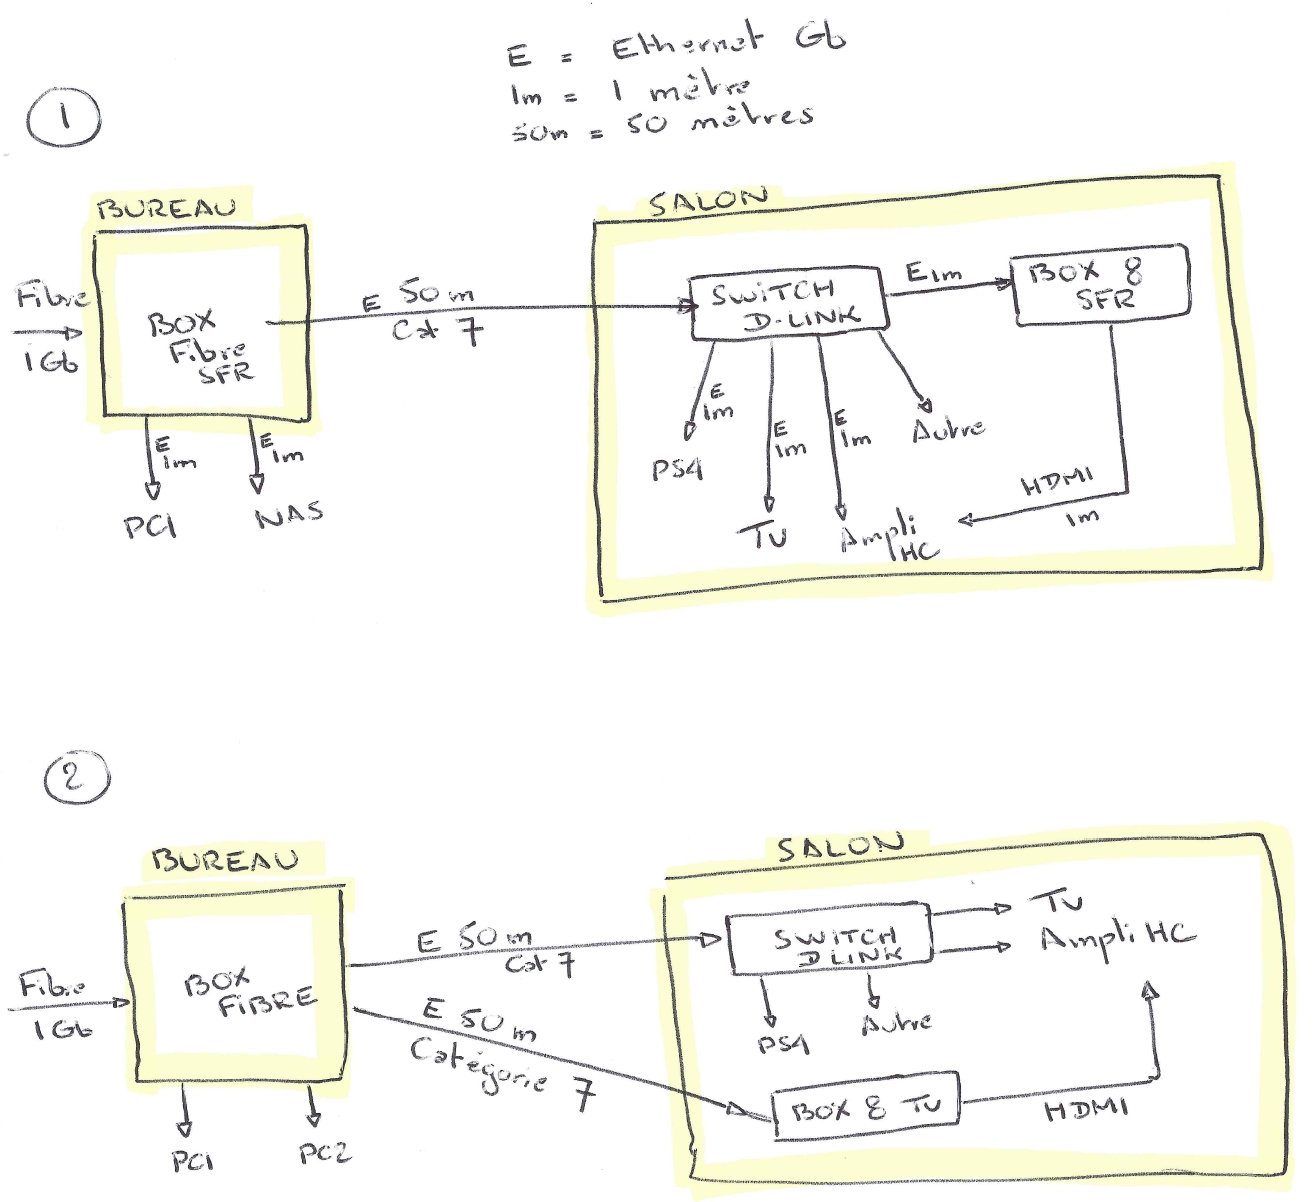 E = Ethernet Gb
1m = 1 mètre
50m = 50 mètres
1
BUREAU
SALON
Fibre
1Gb
BOX
Fibre
SFR
E 50m
Cat 7
SWITCH
D-LINK
E1m
BOX 8
SFR
E
1m
E
1m
PC1
NAS
E
1m
E
1m
E
1m
PS4
TV
Ampli
HC
Autre
HDMI
1m
2
BUREAU
SALON
Fibre
1Gb
BOX
FIBRE
E 50m
Cat 7
E 50m
Catégorie 7
SWITCH
DLINK
TV
Ampli HC
PS4
Autre
BOX 8 TV
HDMI
PC1
PC2